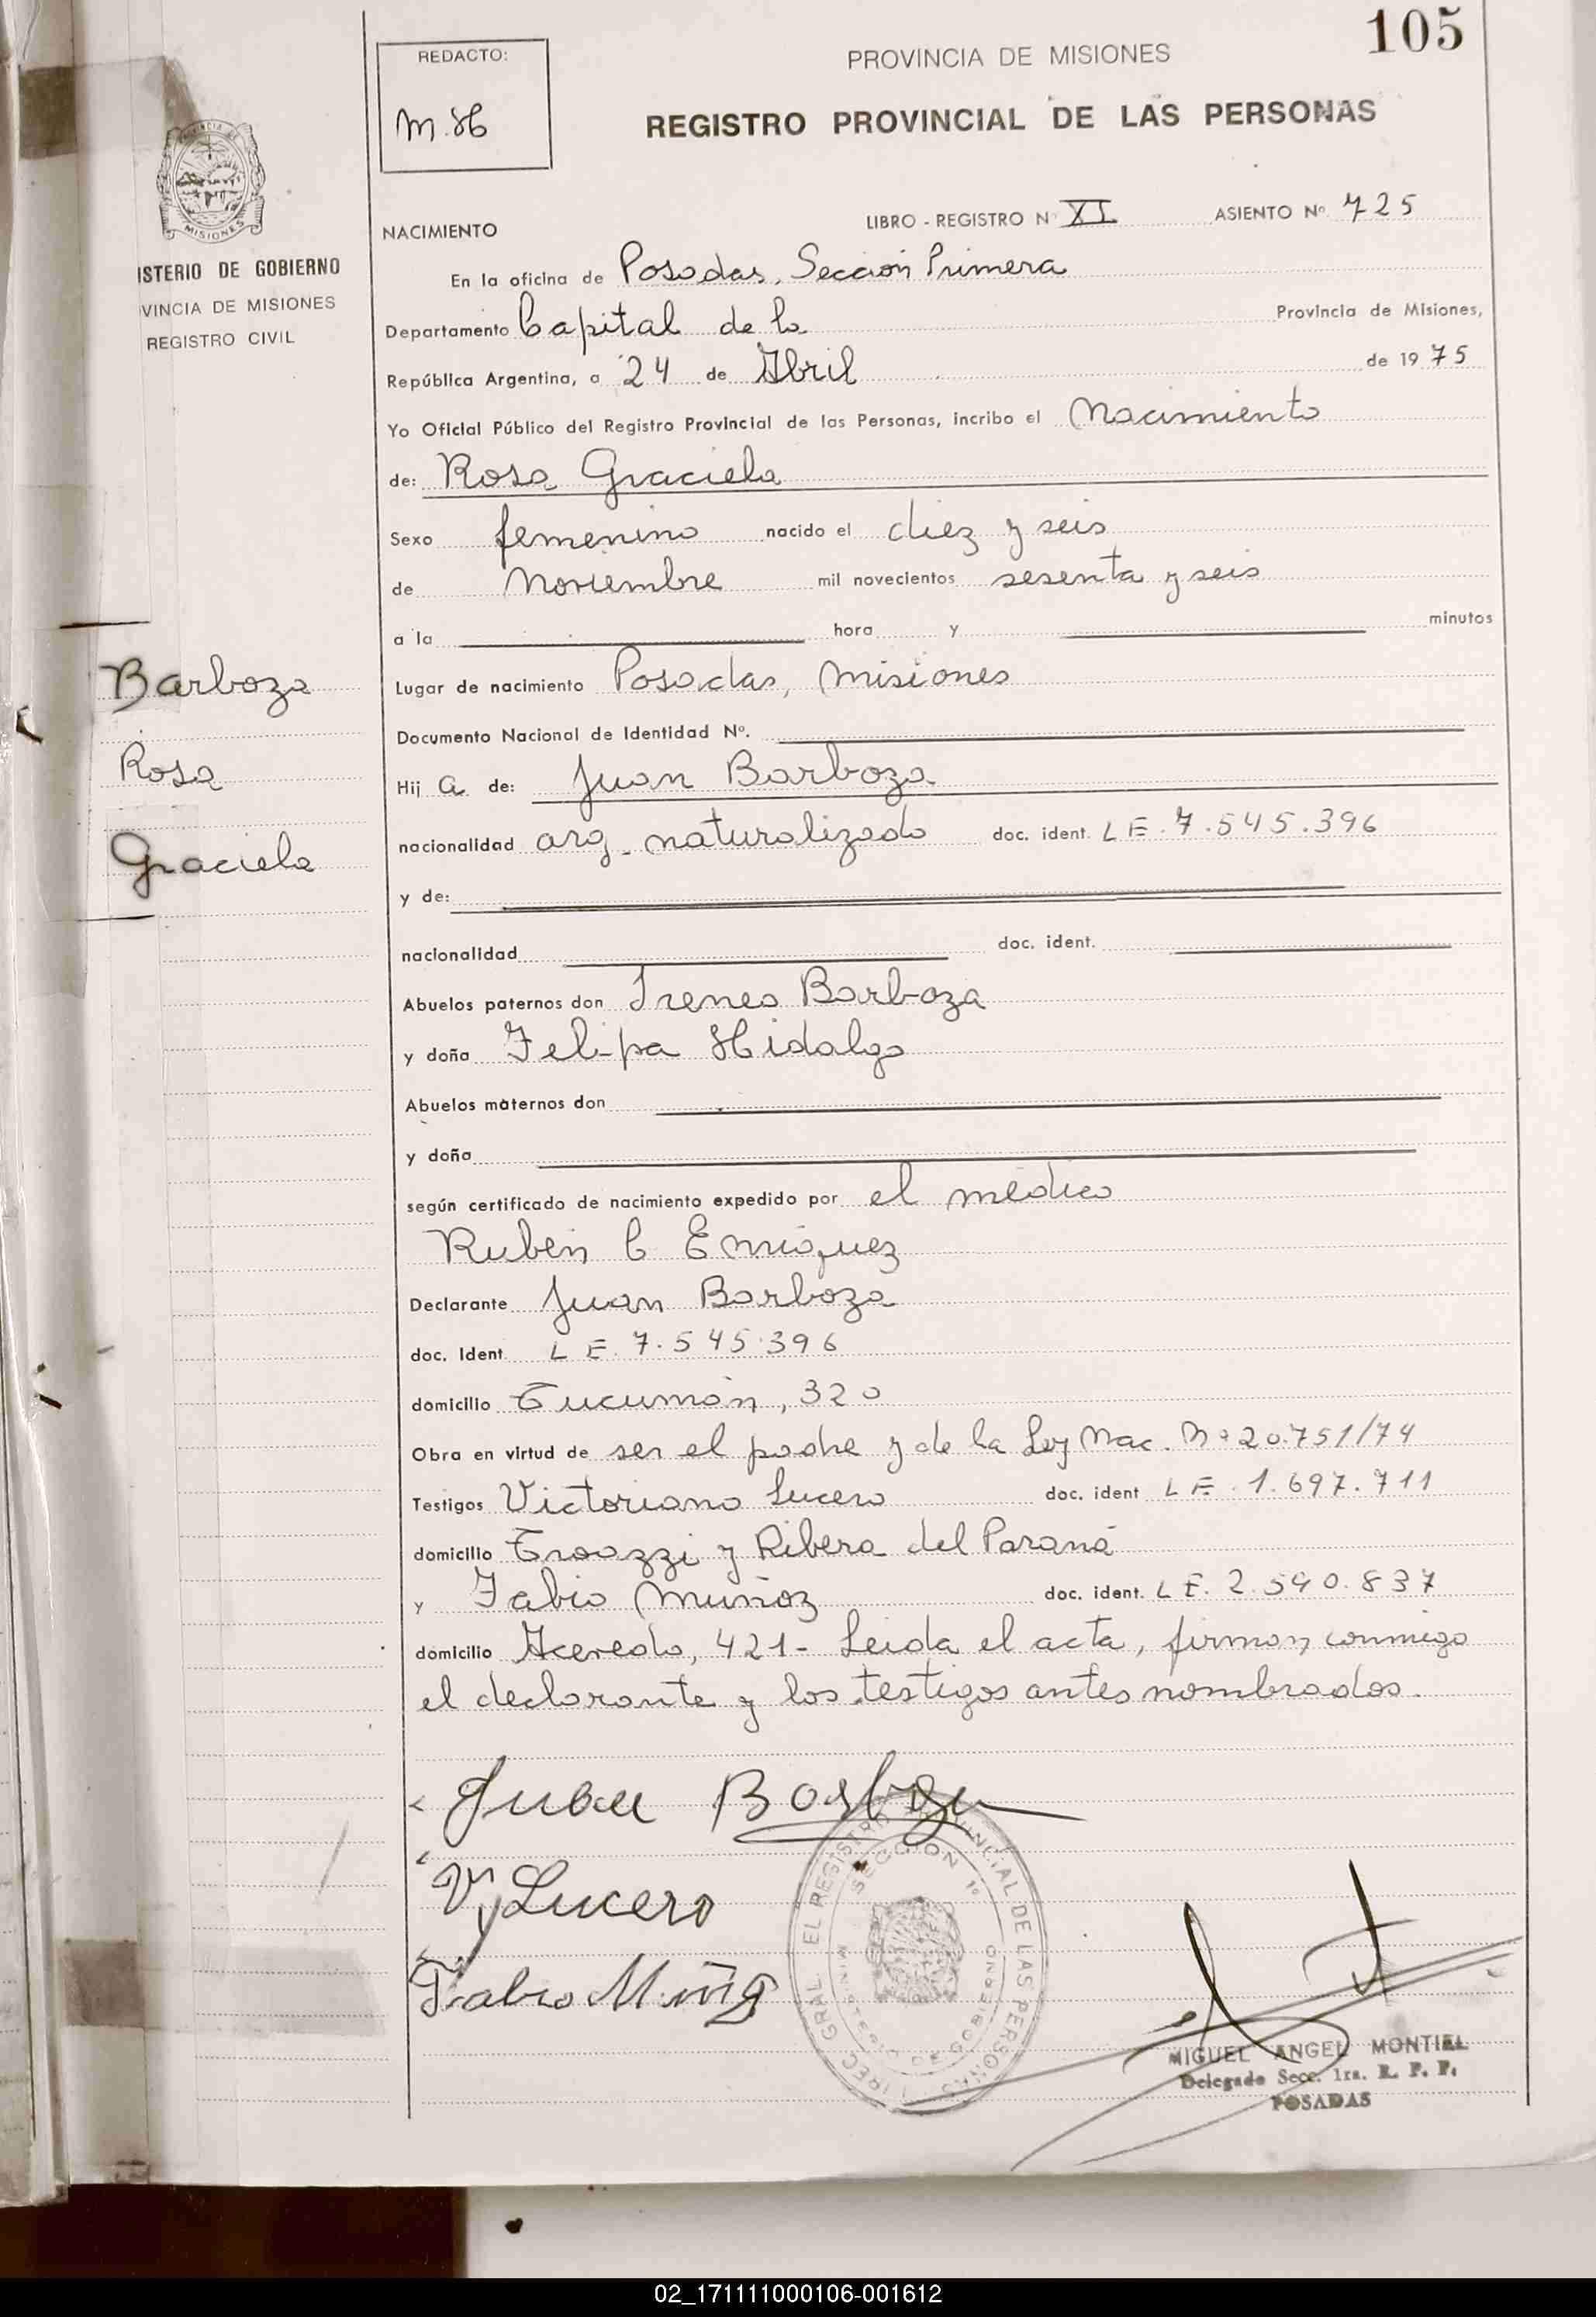 105
REDACTO:
M.H
PROVINCIA DE MISIONES
REGISTRO PROVINCIAL DE LAS PERSONAS
PROVINCIA DE
MISIONES
ISTERIO DE GOBIERNO
VINCIA DE MISIONES
REGISTRO CIVIL
NACIMIENTO LIBRO - REGISTRO Nº XI ASIENTO Nº 725
En la oficina de Posadas, Sección Primera
Departamento Capital de la Provincia de Misiones,
República Argentina, a 24 de Abril de 1975
Yo Oficial Público del Registro Provincial de las Personas, incribo el Nacimiento
de: Rosa Graciela
Sexo femenino nacido el diez y seis
de Noviembre mil novecientos sesenta y seis
a la hora y minutos
Barboza
Rosa
Graciela
Lugar de nacimiento Posadas, Misiones
Documento Nacional de Identidad Nº.
Hij a de: Juan Barboza
nacionalidad arg. naturalizado doc. ident. L E. 7.545.396
y de:
nacionalidad doc. ident.
Abuelos paternos don Ireneo Barboza
y doña Felipa Hidalgo
Abuelos maternos don
y doña
según certificado de nacimiento expedido por el médico
Rubén C Enriquez
Declarante Juan Barboza
doc. Ident L E. 7.545.396
domicilio Tucumán, 320
Obra en virtud de ser el padre y de la Ley Nac. Nº 20.751/74
Testigos Victoriano Lucero doc. ident L E. 1.697.711
domicilio y Ribera del Paraná
y Fabio Muñoz doc. ident. L E. 2.590.837
domicilio Acevedo, 421- Leida el acta, firman conmigo
el declarante y los testigos antes nombrados.
Juan Barboza
V. Lucero
Fabio Muñoz
GRAL. EL REGISTRO PROVINCIAL DE LAS PERSONAS
SECCION 1º
MINISTERIO DE GOBIERNO
MIGUEL ANGEL MONTIEL
Delegado Secc. 1ra. R. P. P.
POSADAS
02_171111000106-001612